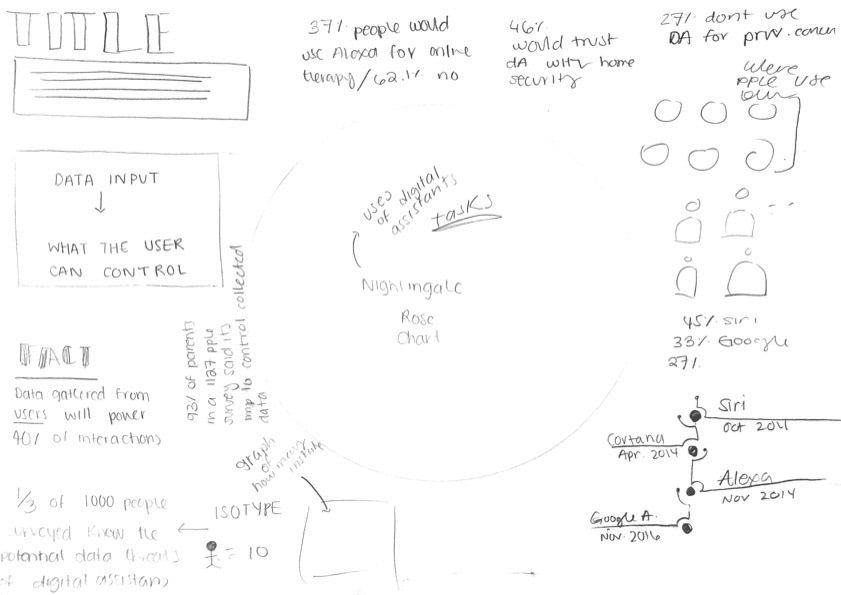 TITLE
37% people would
use Alexa for online
therapy/62.1% no
46%
would trust
dA with home
security
27% dont use
DA for priv. concern
Where
pple use
DATA INPUT
↓
WHAT THE USER
CAN CONTROL
uses of digital
assistants
tasks
Nightingale
Rose
Chart
93% of parents
in a 1127 pple
survey said its
imp to control collected
data
45% Siri
33% Google
27%
FACT
Data gathered from
users will power
40% of interactions
Siri
Oct 2011
Cortana
Apr. 2014
Alexa
Nov 2014
Google A.
Nov. 2016
graph
of
how many
1/3 of 1000 people
surveyed know the
potential data threats
of digital assistans
ISOTYPE
= 10